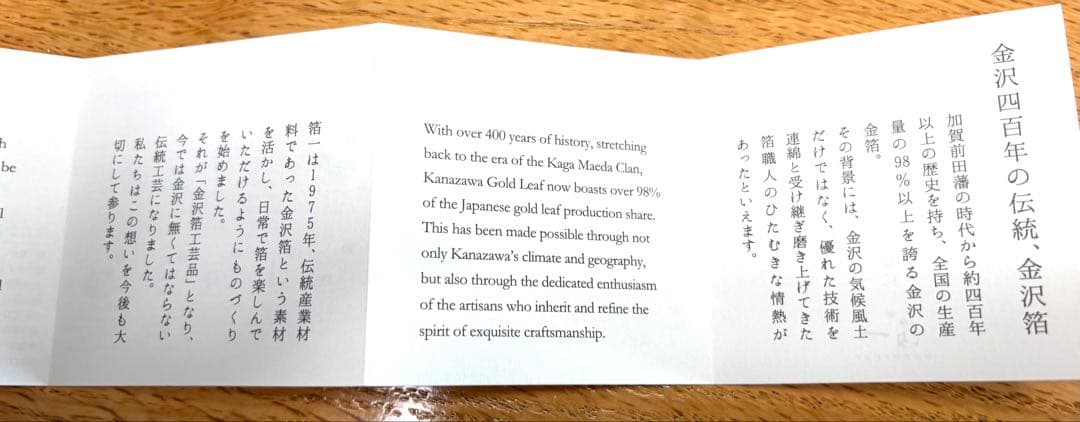 金沢四百年の伝統、金沢箔
加賀前田藩の時代から約四百年
以上の歴史を持ち、全国の生産
量の98%以上を誇る金沢の
金箔。
その背景には、金沢の気候風土
だけではなく、優れた技術を
連綿と受け継ぎ磨き上げてきた
箔職人のひたむきな情熱が
あったといえます。
With over 400 years of history, stretching
back to the era of the Kaga Maeda Clan,
Kanazawa Gold Leaf now boasts over 98%
of the Japanese gold leaf production share.
This has been made possible through not
only Kanazawa's climate and geography,
but also through the dedicated enthusiasm
of the artisans who inherit and refine the
spirit of exquisite craftsmanship.
箔一は1975年、伝統産業材
料であった金沢箔という素材
を活かし、日常で箔を楽しんで
いただけるようにものづくり
を始めました。
それが「金沢箔工芸品」となり、
今では金沢に無くてはならない
伝統工芸になりました。
私たちはこの想いを今後も大
切にして参ります。
be